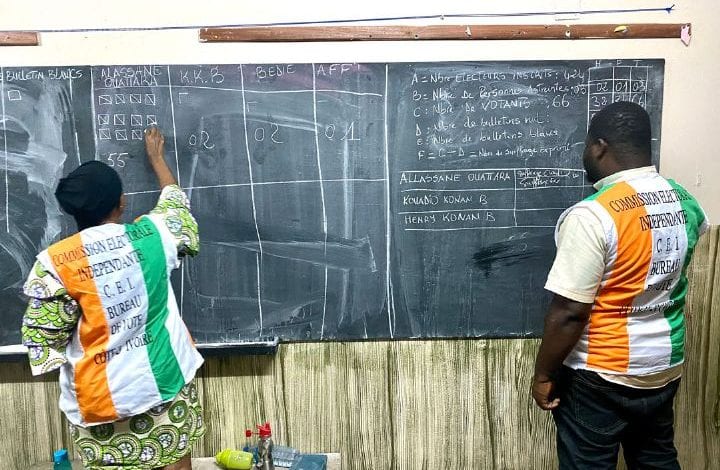 BULLETIN BLANCS
ALASSANE
OUATTARA
K.K.B
BEDIE
AFF
55
02
02
01
A = Nbre ELECTEURS INSCRITS : 424
B = Nbre de Personnes Astreintes :
C = Nbre de VOTANTS : 66
D = Nbre de bulletins nul :
E = Nbre de bulletins blancs
F = C - D = Nbre de Suffrage Exprimé
H F T
02 01 03
ALLASSANE OUATTARA
KOUADIO KONAN B
HENRY KONAN B
COMMISSION ELECTORALE
INDEPENDANTE
C.E.I
BUREAU
DE VOTE
COTE D'IVOIRE
COMMISSION ELECTORALE
INDEPENDANTE
C.E.I
BUREAU
DE VOTE
COTE D'IVOIRE